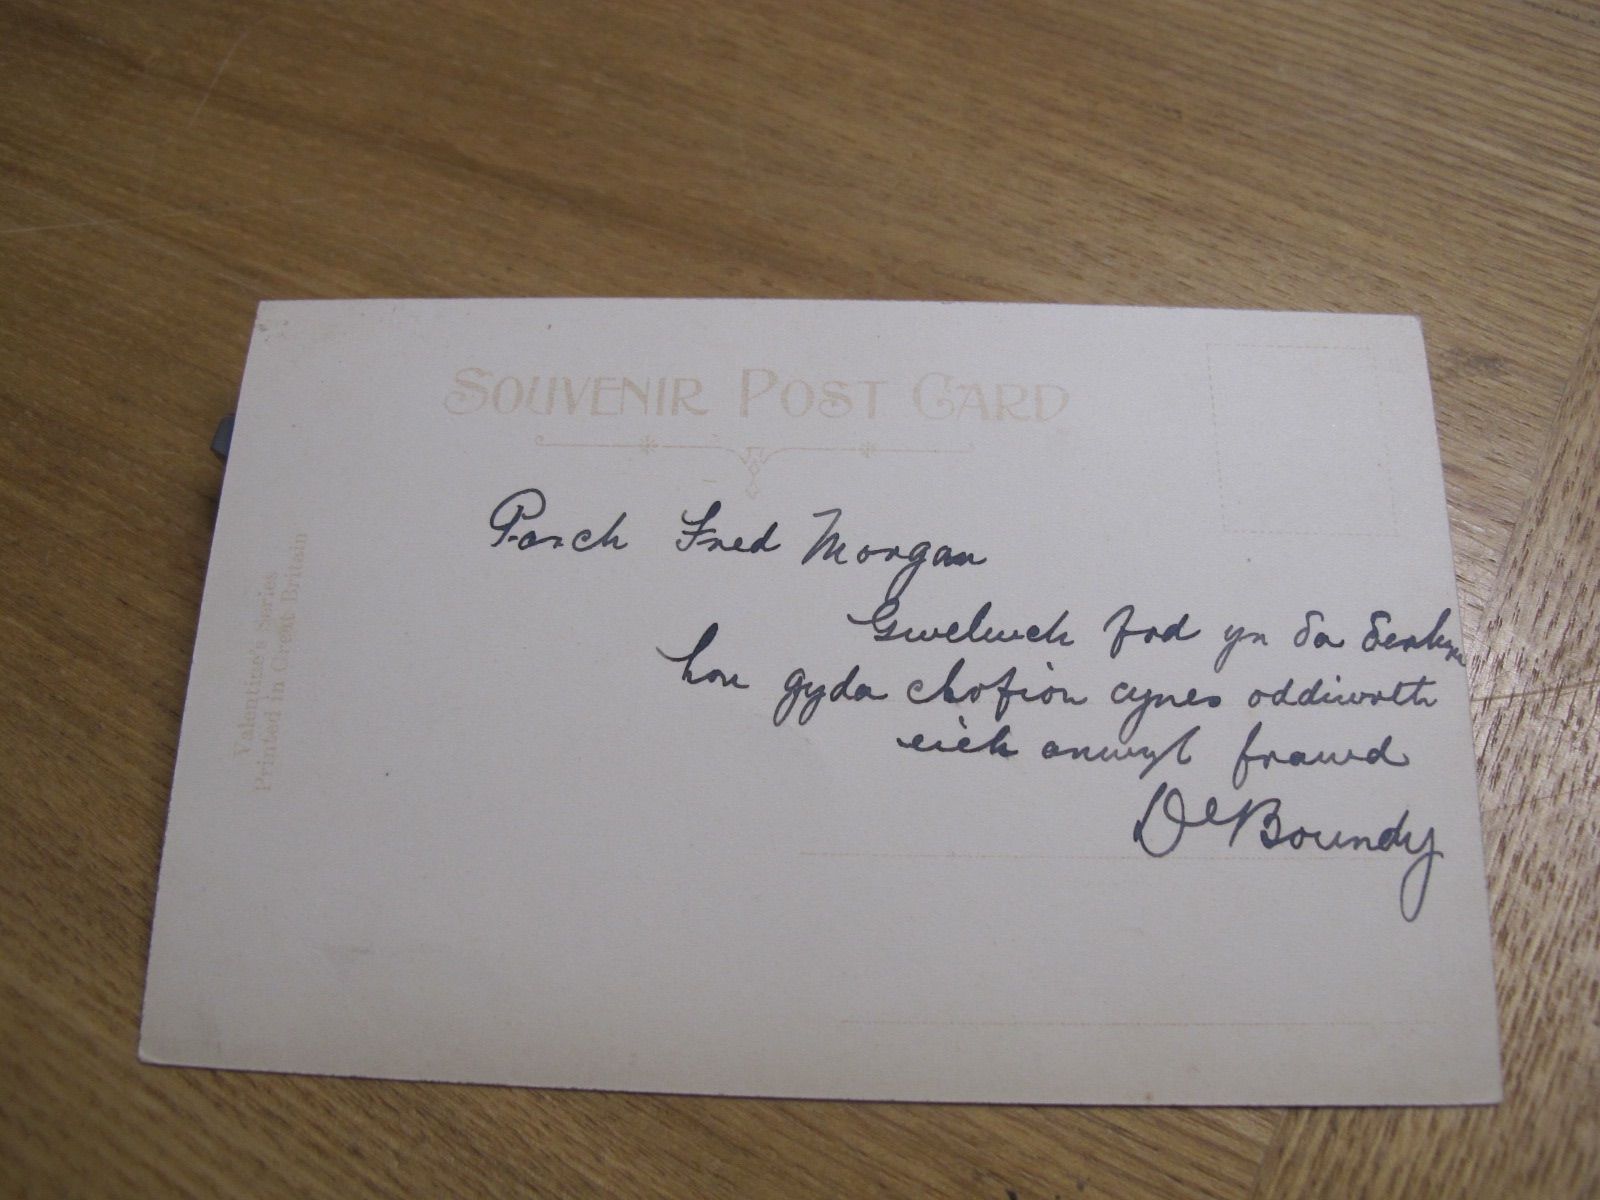 SOUVENIR POST CARD
Valentine's Series
Printed in Great Britain
Parch Fred Morgan
Gwelwch fod yn dda dderbyn
hon gyda chofion cynes oddiwrth
eich anwyl frawd
Boundy